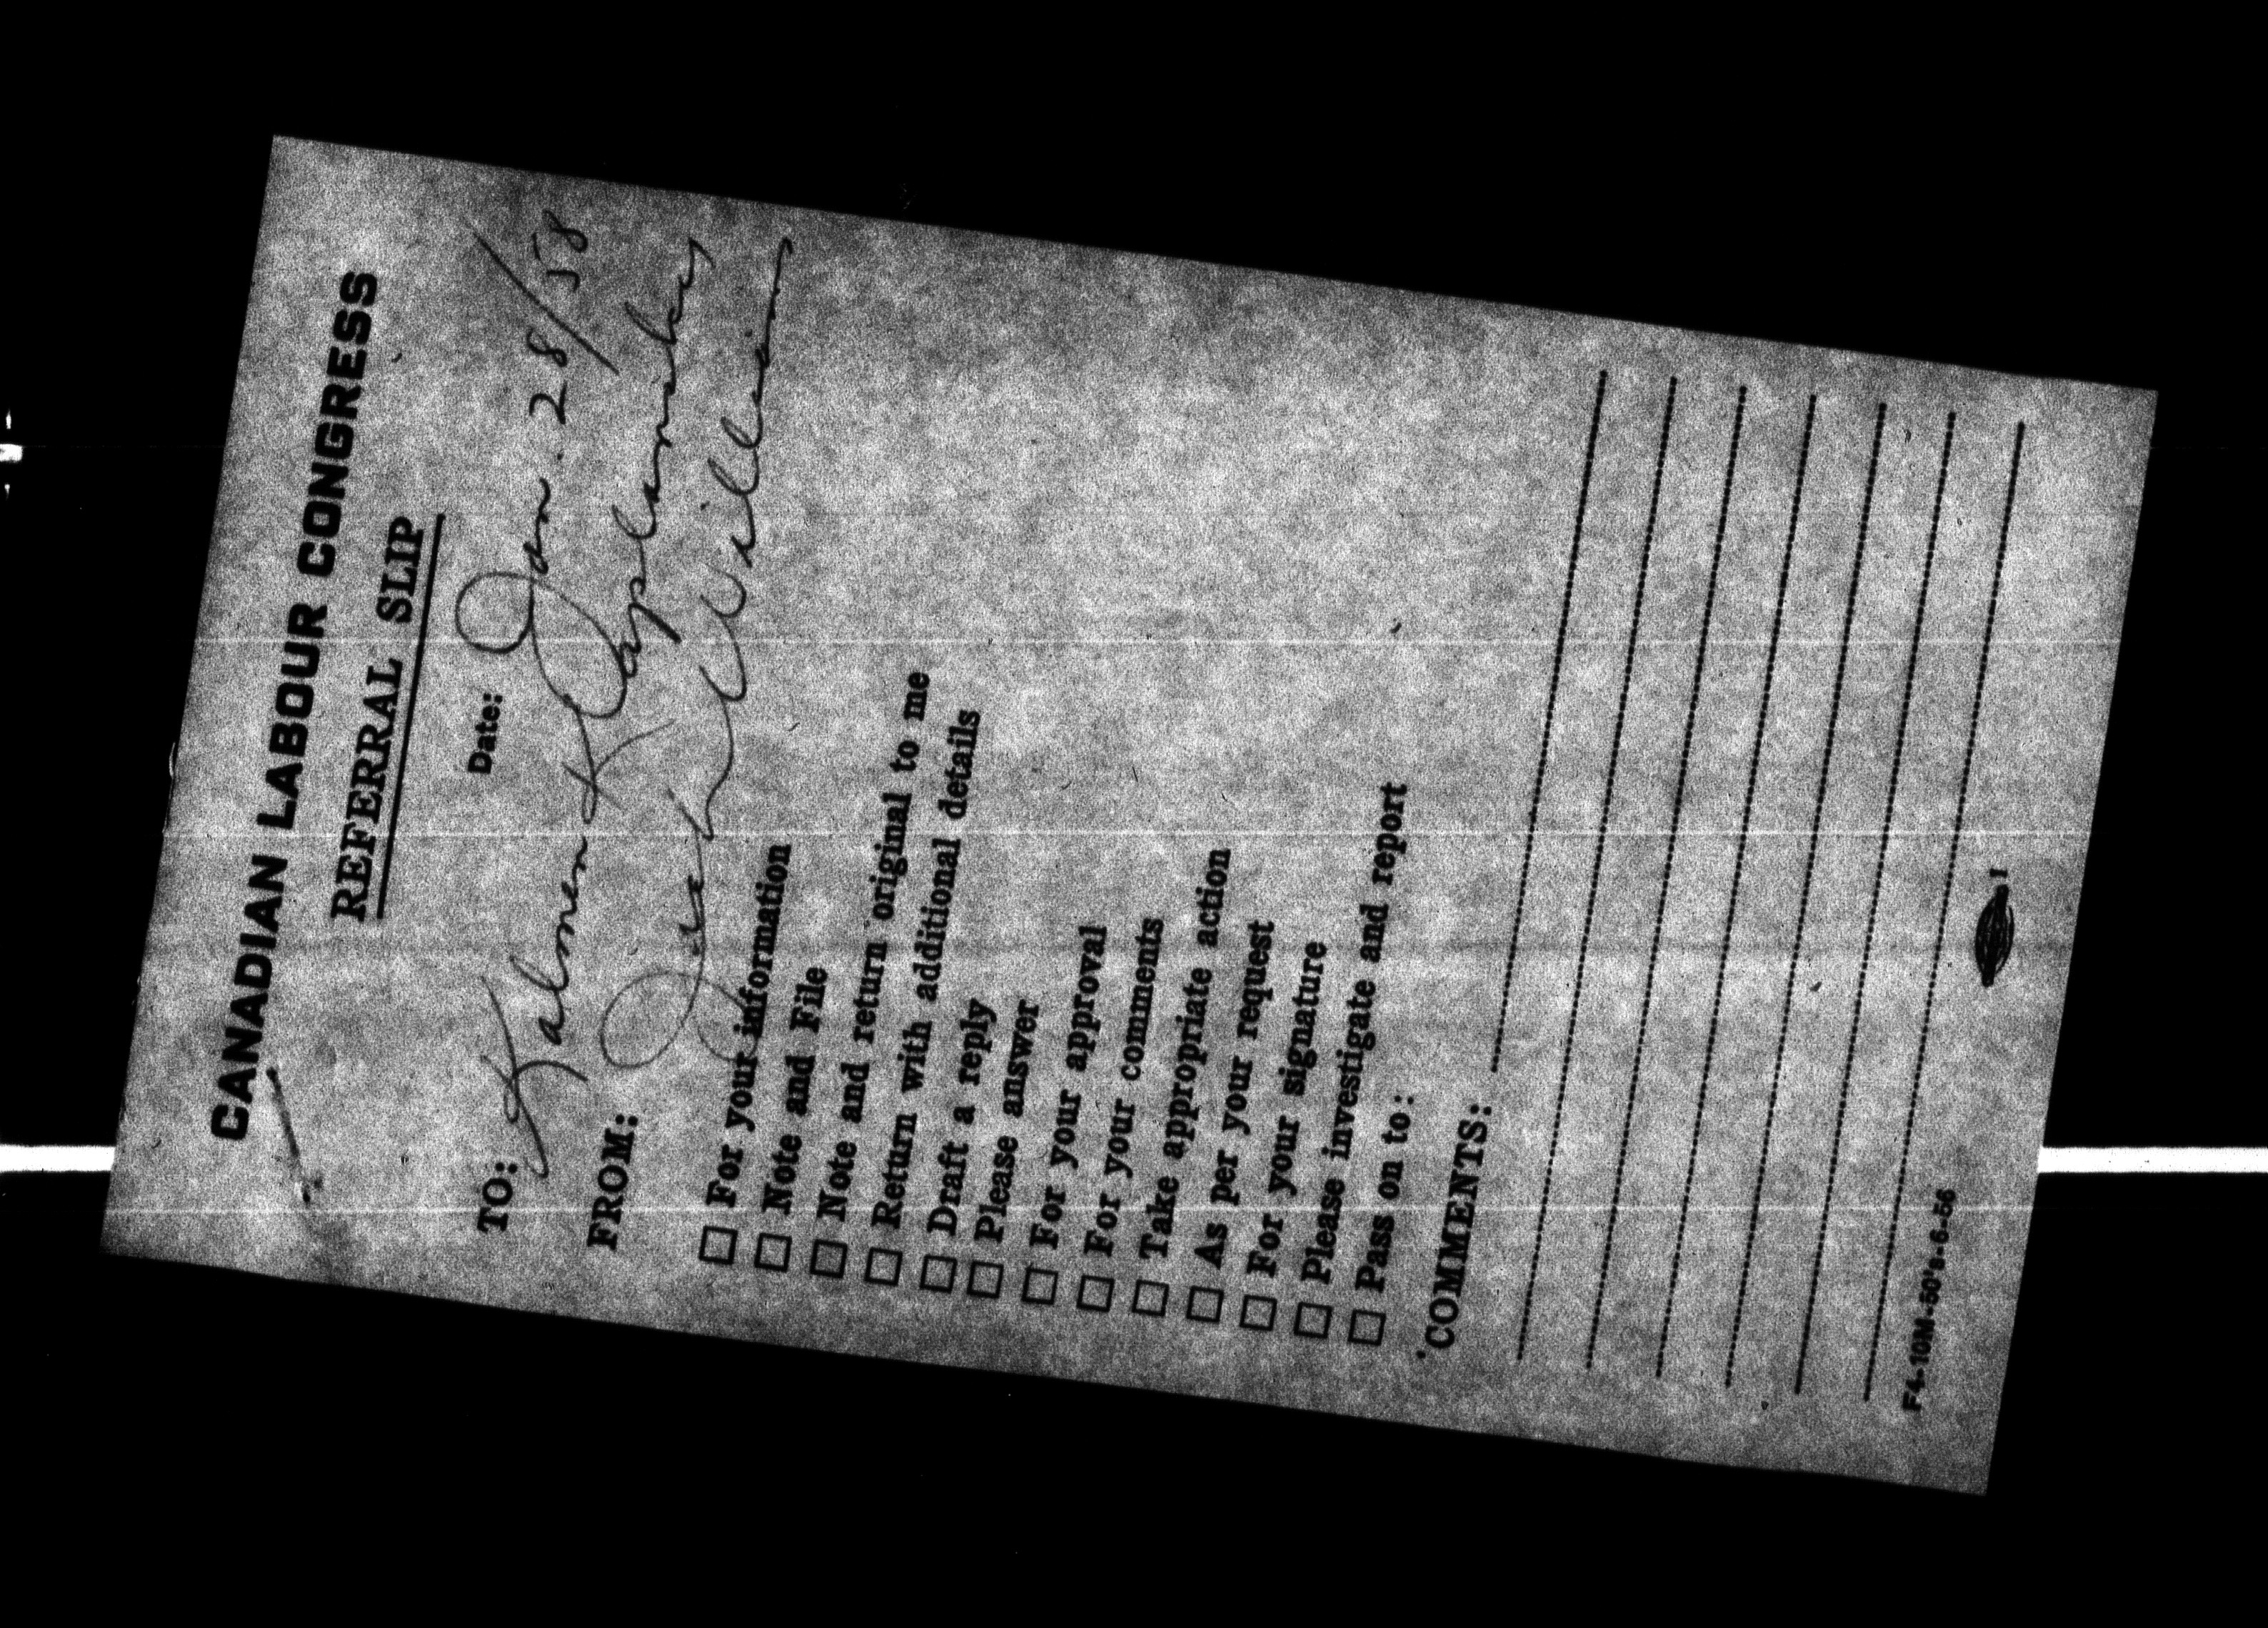 CANADIAN LABOUR CONGRESS
REFERRAL SLIP
Date: Jan. 28/58
TO: Kalmen Kaplansky
FROM: Jack Williams
☐ For your information
☐ Note and File
☐ Note and return original to me
☐ Return with additional details
☐ Draft a reply
☐ Please answer
☐ For your approval
☐ For your comments
☐ Take appropriate action
☐ As per your request
☐ For your signature
☐ Please investigate and report
☐ Pass on to:
COMMENTS:
F4-10M-50's-6-56